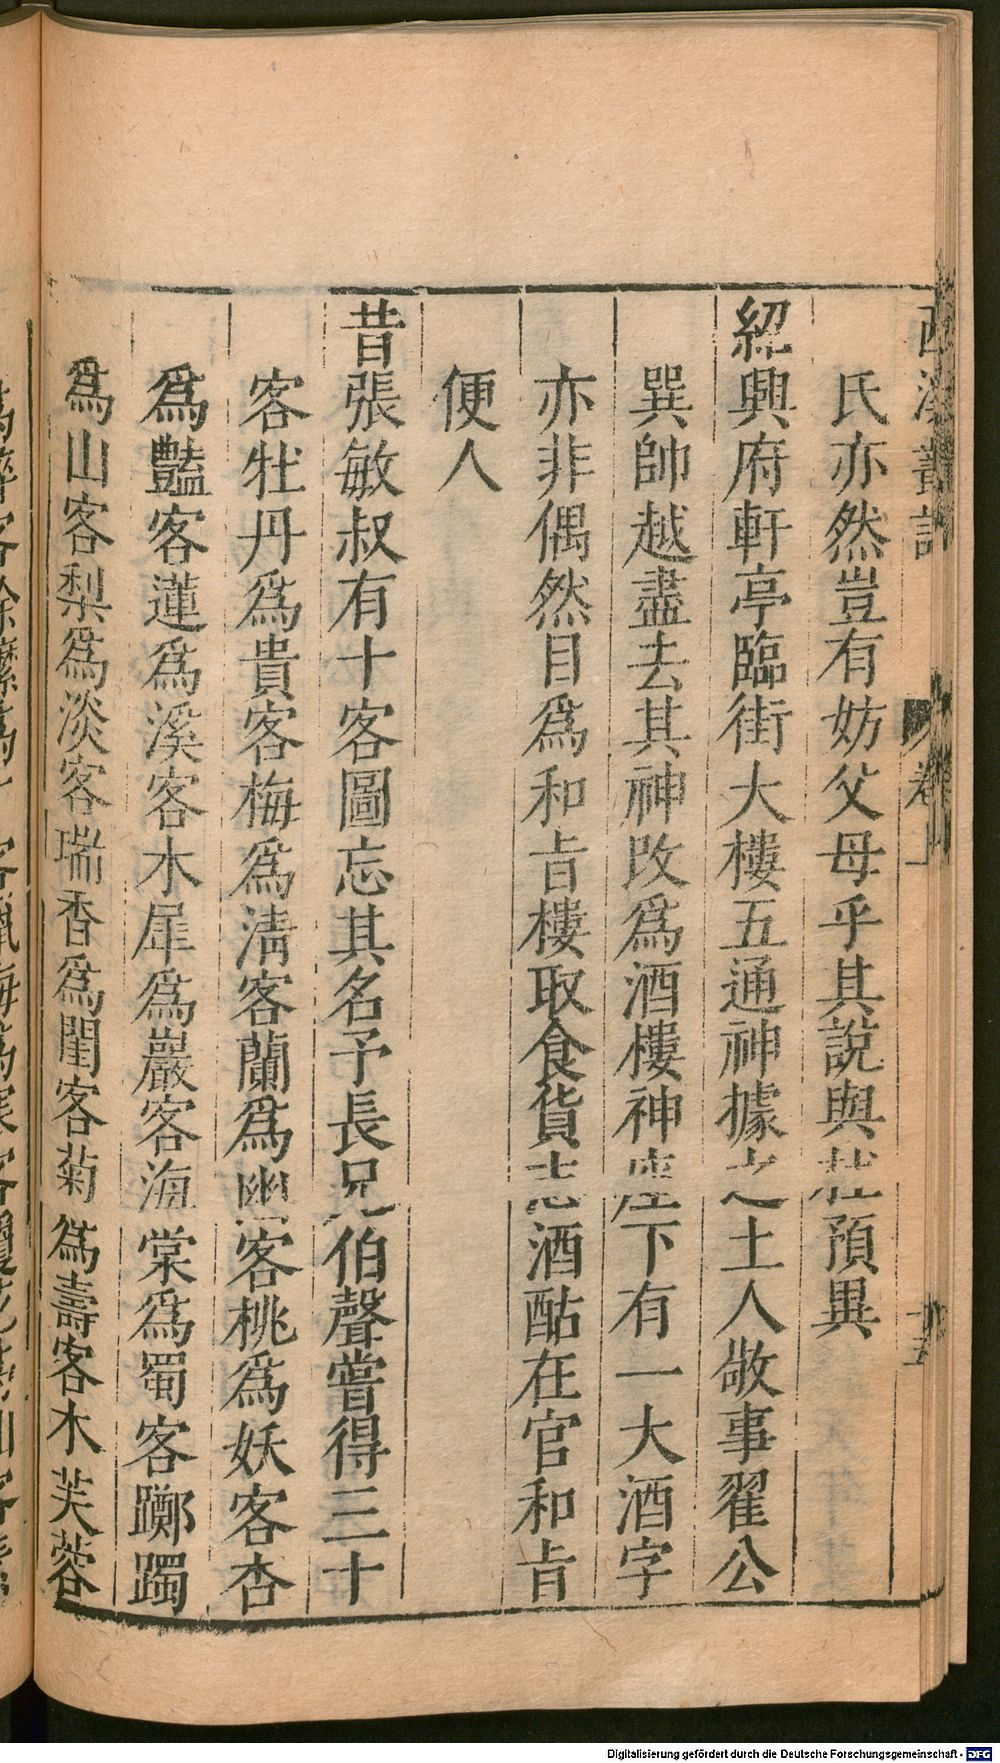 西溪叢語 卷上 十五
氏亦然豈有妨父母乎其說與杜預異
紹興府軒亭臨街大樓五通神據之土人敬事翟公
巽帥越盡去其神改為酒樓神座下有一大酒字
亦非偶然目為和㫖樓取食貨志酒酤在官和㫖
便人
昔張敏叔有十客圖忘其名予長兄伯聲嘗得三十
客牡丹為貴客梅為清客蘭為幽客桃為妖客杏
為豔客蓮為溪客木犀為巖客海棠為蜀客躑躅
為山客梨為淡客瑞香為閨客菊為壽客木芙蓉
Digitalisierung gefördert durch die Deutsche Forschungsgemeinschaft - DFG